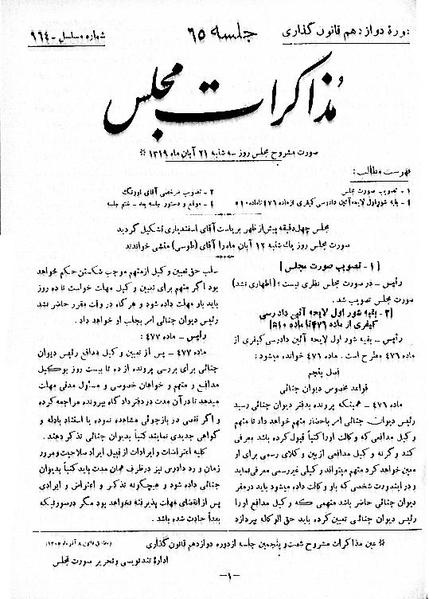 دورهٔ دوازدهم قانون گذاری
جلسه ۶۵
شماره مسلسل - ۹۶۴
مذاکرات مجلس
صورت مشروح مجلس روز سه شنبه ۲۱ آبان ماه ۱۳۱۹ *
فهرست مطالب:
۱ - تصویب صورت مجلس
۲ - بقیه شور اول لایحه آئین دادرسی کیفری از ماده ۴۷۶ تا ماده ۵۱۰
۳ - تصویب مرخصی آقای اورنگ
۴ - موقع و دستور جلسه بعد - ختم جلسه
مجلس چهل دقیقه پیش از ظهر بریاست آقای اسفندیاری تشکیل گردید
صورت مجلس روز یکشنبه ۱۲ آبان ماه را آقای (طوسی) منشی خواندند
[ ۱ - تصویب صورت مجلس ]
رئیس - در صورت مجلس نظری نیست؟ (اظهاری نشد)
صورت مجلس تصویب شد.
[ ۲ - بقیه شور اول لایحه آئین دادرسی
کیفری از ماده ۴۷۶ تا ماده ۵۱۰ ]
رئیس - بقیه شور اول لایحه آئین دادرسی کیفری از
ماده ۴۷۶ مطرح است. ماده ۴۷۶ خوانده میشود:
فصل پنجم
قواعد مخصوص دیوان جنائی
ماده ۴۷۶ - همینکه پرونده بدفتر دیوان جنائی رسید
رئیس دیوان جنائی امر باحضار متهم خواهد داد تا متهم
وکیل مدافعی که وکالت او را کتباً قبول کرده باشد معرفی
کند و گرنه وکیل مدافعی از بین وکلای رسمی برای او
معین خواهد کرد متهم میتواند وکیل غیر رسمی معرفی نماید
و در اینصورت شخصی که باو وکالت داده میشود باید در مقر
دیوان جنائی حاضر باشد متهمی که وکیل مدافع او را
رئیس دیوان جنائی تعیین کرده باید حق الوکاله بپردازد
سلب حق تعیین وکیل از متهم موجب شکستن حکم خواهد
بود اگر متهم برای تعیین وکیل مهلت خواست تا ده روز
باید باو مهلت داده شود و هر گاه در وقت مقرر حاضر نشد
رئیس دیوان جنائی امر بجلب او خواهد داد.
رئیس - ماده ۴۷۷:
ماده ۴۷۷ - پس از تعیین وکیل مدافع رئیس دیوان
جنائی برای بررسی پرونده از ده تا بیست روز بوکیل
مدافع و متهم و خواهان خصوصی و مسئول مدنی مهلت
میدهد تا در آن مدت در دفتر دادگاه بپرونده مراجعه کرده
و اگر نقصی در بازجوئی مشاهده نموده یا استناد بادله و
گواهی جدیدی نمایند کتباً بدیوان جنائی تذکر دهند.
کلیه اعتراضات و ایرادات از قبیل ایراد صلاحیت و مرور
زمان و رد دادرس نیز در ظرف همان مدت باید کتباً بدیوان
جنائی داده شود و هیچگونه تذکر و اعتراض و ایرادی
پس از انقضای مهلت پذیرفته نخواهد بود مگر درصورتیکه
بعداً حادث شده باشد.
* عین مذاکرات مشروح شصت و پنجمین جلسه از دوره دوازدهم قانون گذاری
اداره تندنویسی و تحریر صورت مجلس
-۱-